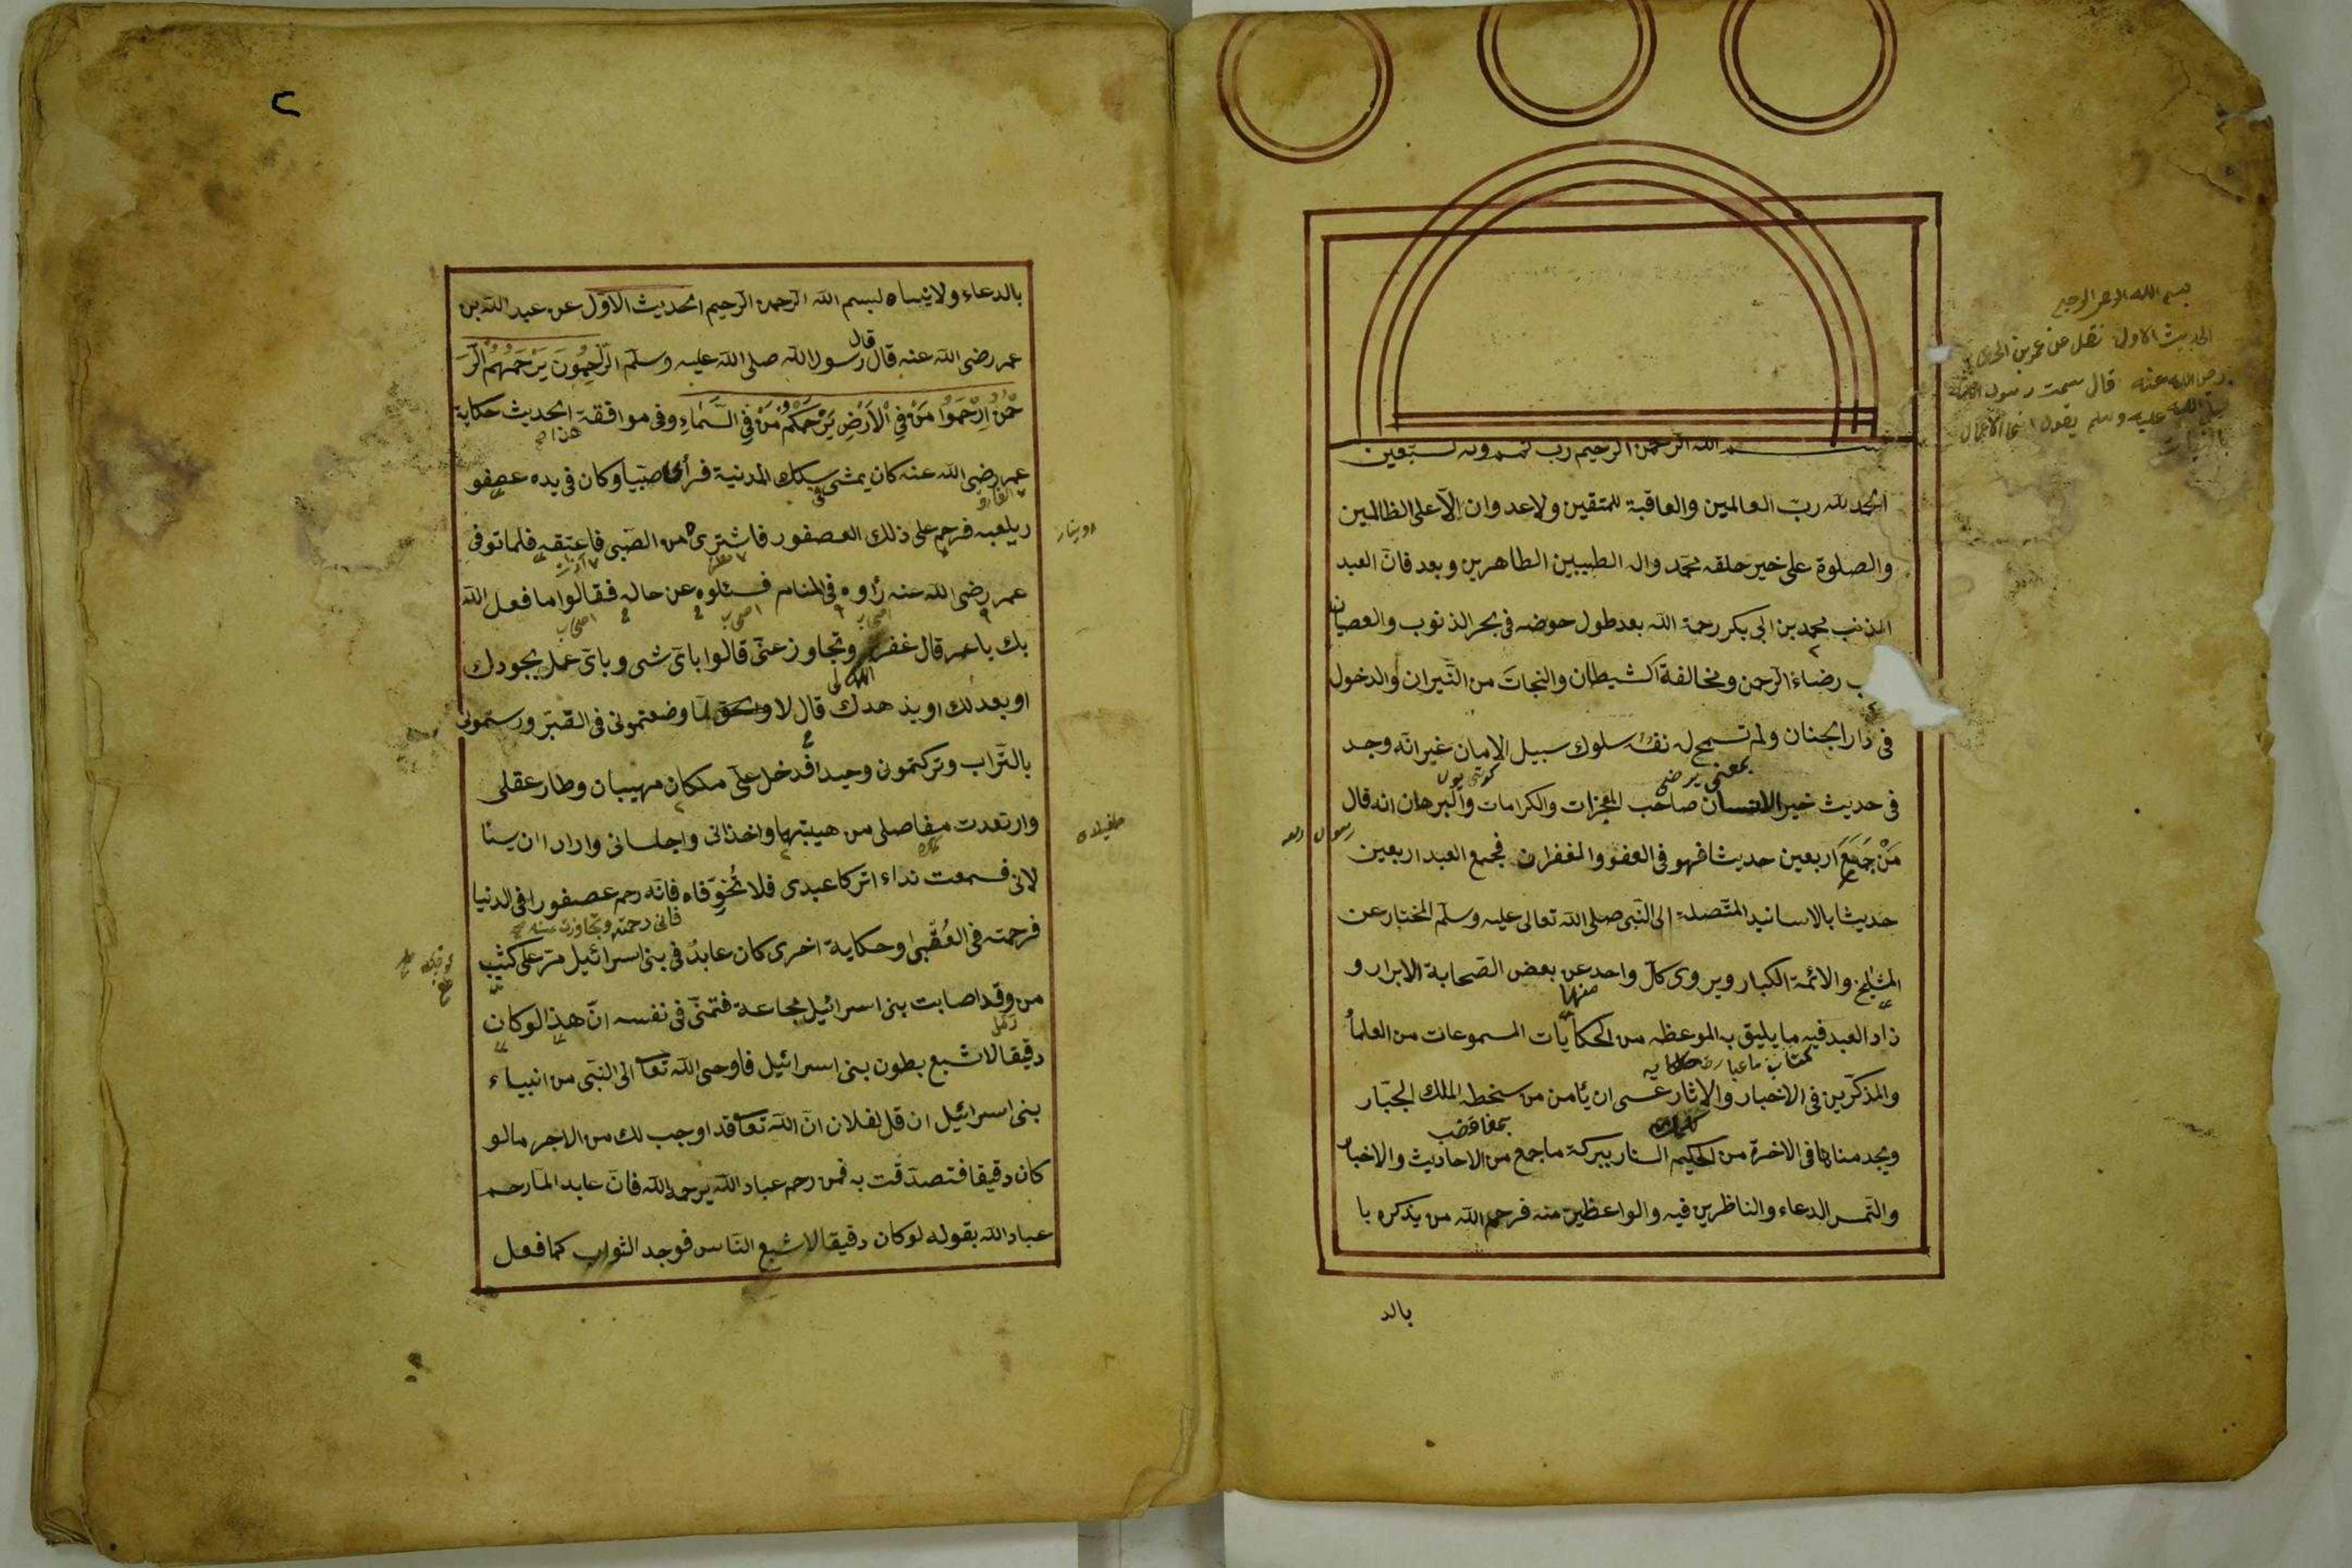 بسم الله الرحمن الرحيم رب تمم وبه نستعين
الحمد لله رب العالمين والعاقبة للمتقين ولاعدوان الّا على الظالمين
والصلوة على خير خلقه محمّد واله الطيبين الطاهرين وبعد فانّ العبد
المذنب محمد بن ابى بكر رحمة الله بعد طول خوضه فى بحر الذنوب والعصيان
رضاء الرحمن ومخالفة الشيطان والنجات من النّيران والدخول
فى دار الجنان ولم تسمح له نفسه سلوك سبيل الامان غير انّه وجد
بمعنى يرضى
فى حديث خير الانسان صاحب المعجزات والكرامات والبرهان انه قال
رسول الله
مَنْ جَمَعَ اربعين حديثا فهو فى العفو والغفران فجمع العبد اربعين
حديثا بالاسانيد المتّصلة الى النّبى صلى الله تعالى عليه وسلّم المختار عن
المشايخ والائمة الكبار ويروى كلّ واحد عن بعض الصّحابة الابرار و
منها
زاد العبد فيه ما يليق به الموعظه من الحكايات المسموعات من العلماء
والمذكّرين فى الاخبار والاثار عسى ان يأمن من سخطه الملك الجبّار
ويجد مناها فى الاخرة من الحكيم الستار ببركة ما جمع من الاحاديث والاخبار
والتمس الدعاء والناظرين فيه والواعظين منه فرحم الله من يذكره با
بالد
بسم الله الرحمن الرحيم
الحديث الاول نقل عن عمر بن
رضى الله عنه قال سمعت رسول الله
صلى الله عليه وسلم يقول انما الاعمال
بالنيات
٢
بالدعاء ولاينساه بسم الله الرحمن الرحيم الحديث الاوّل عن عبد الله بن
قال
عمر رضى الله عنه قال رسول الله صلى الله عليه وسلّم الرّاحِمُونَ يَرْحَمُهُمُ الرَّ
حْمٰنُ اِرْحَمُوا مَنْ فِي الْاَرْضِ يَرْحَمْكُمْ مَنْ فِي السَّمَاءِ وفى موافقة الحديث حكاية
عمر رضى الله عنه كان يمشى سكك المدينة فرأى صبيا وكان فى يده عصفو
ر يلعبه فرحم على ذلك العصفور فاشترىه من الصّبى فاعتقه فلما توفى
عمر رضى الله عنه رأوه فى المنام فسئلوه عن حاله فقالوا ما فعل الله
بك يا عمر قال غفر وتجاوز عنّى قالوا باىّ شى وباىّ عمل بجودك
الله لى
او بعدلك او بزهدك قال لا لمّا وضعتمونى فى القبر وسترتمونى
بالتّراب وتركتمونى وحيدا فدخل علىّ ملكان مهيبان وطار عقلى
وارتعدت مفاصلى من هيبتها واخذانى واجلسانى وارادا ان يسئا
لانى فسمعت نداء اتركا عبدى فلا تُخوّفاه فانّه رحم عصفورا فى الدنيا
فانى رحمته وتجاوزت عنه
فرحمته فى العُقبى وحكاية اخرى كان عابدٌ فى بنى اسرائيل مرّ على كثيب
رمل
من وقد اصابت بنى اسرائيل مجاعة فتمنّى فى نفسه انّ هذا لو كان
دقيقا لاشبع بطون بنى اسرائيل فاوحى الله تعا الى النبّى من انبياء
بنى اسرائيل ان قل لفلان انّ الله تعا قد اوجب لك من الاجر ما لو
كان دقيقا فتصدّقت به فمن رحم عباد الله يرحمه الله فانّ عابد المّا رحم
عباد الله بقوله لو كان دقيقا لاشبع النّاس فوجد الثواب كما فعل